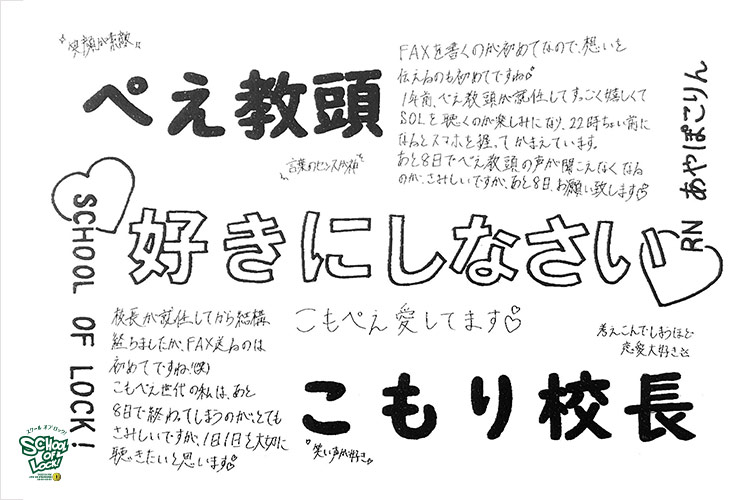 笑顔が素敵
ぺえ教頭
FAXを書くのが初めてなので、想いを
伝えるのも初めてですね♡
1年前、ぺえ教頭が就任してすっごく嬉しくて
SOLを聴くのが楽しみになり、22時ちょい前に
なるとスマホを握ってかまえています。
あと8日でぺえ教頭の声が聞こえなくなる
のが、さみしいですが、あと8日、お願い致します♡
言葉のセンスが神
RN あやぽこりん
SCHOOL OF LOCK!
好きにしなさい
校長が就任してから結構
経ちましたが、FAX送るのは
初めてですね!(笑)
こもぺえ世代の私は、あと
8日で終わってしまうのがとても
さみしいですが、1日1日を大切に
聴きたいと思います♡
こもぺえ愛してます♡
考えこんでしまうほど
恋愛大好き☆
こもり校長
笑い声が好き
スクール オブ ロック!
SCHOOL
OF
LOCK!